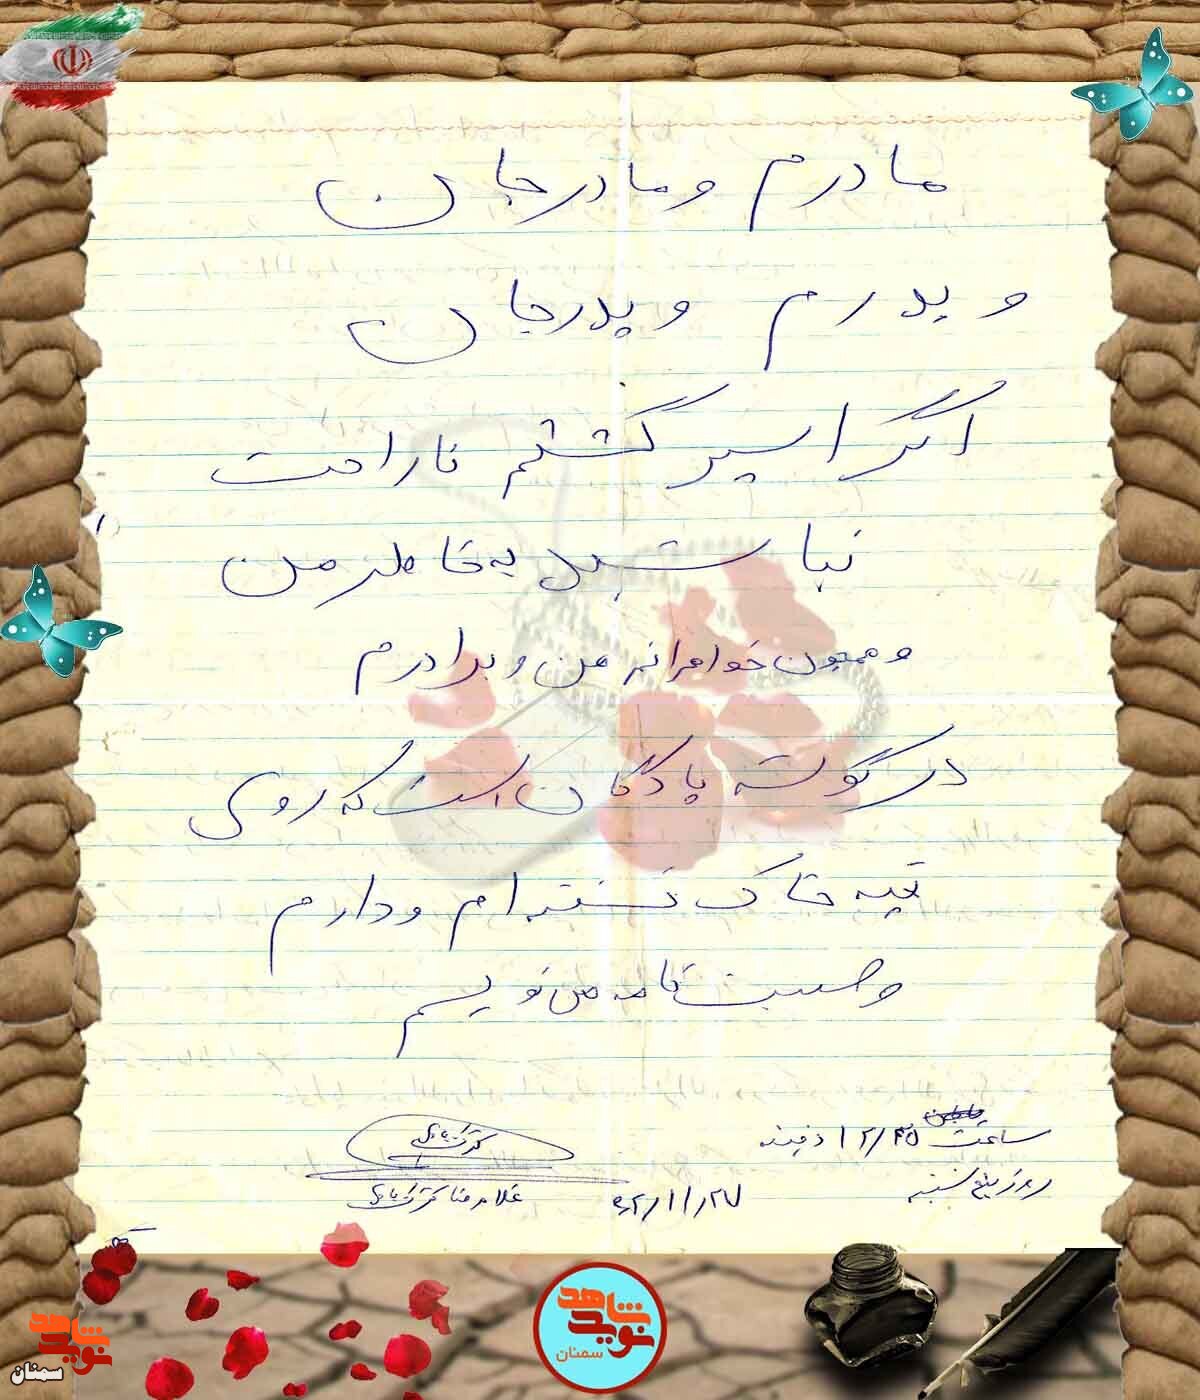 مادرم و مادرجان
و پدرم و پدرجان
اگر اسیر گشتم ناراحت
نباشید به خاطر من
و همچون خواهرانه من و برادرم
در گوشه پادگان است که روی
تپه خاک نشسته ام و دارم
وصیت نامه می نویسم
ساعت ۱۲/۴۵ دقیقه
روز پنج شنبه
۶۲/۱۱/۲۷
غلامرضا
نوید شاهد
سمنان
نوید شاهد
سمنان